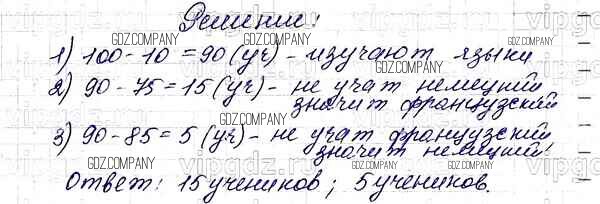 Решение:
1) 100 - 10 = 90 (уч) - изучают языки
2) 90 - 75 = 15 (уч) - не учат немецкий
значит французский
3) 90 - 85 = 5 (уч) - не учат французский
значит немецкий!
Ответ: 15 учеников; 5 учеников.
GDZ.COMPANY
GDZ.COMPANY
GDZ.COMPANY
GDZ.COMPANY
GDZ.COMPANY
GDZ.COMPANY
GDZ.COMPANY
GDZ.COMPANY
GDZ.COMPANY
vipgdz.ru